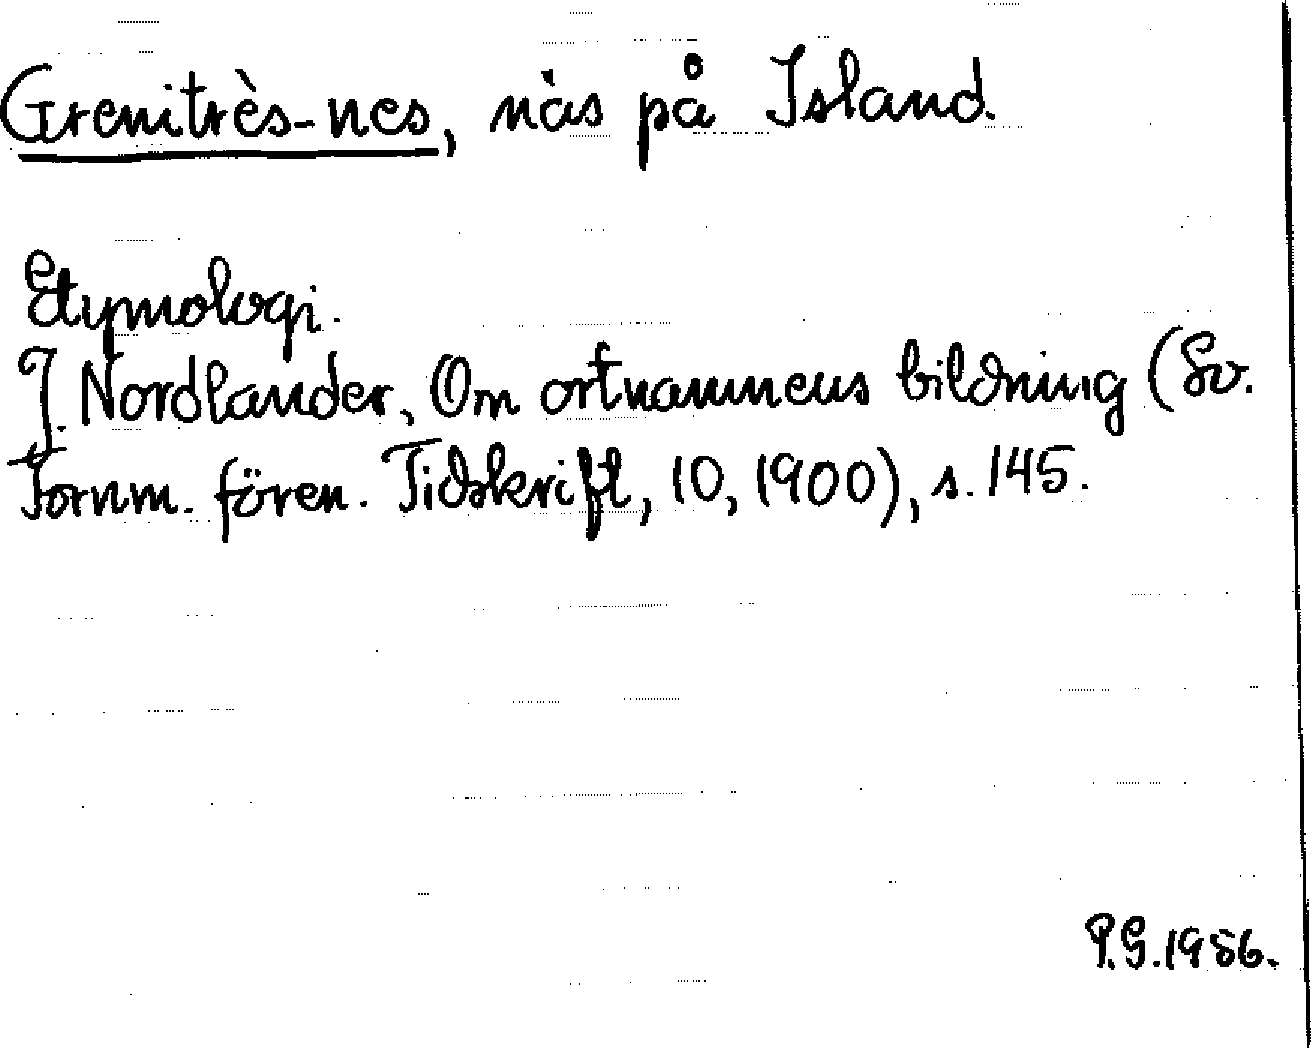 Grenitrès-nes, näs på Island.
Etymologi.
J. Nordlander, Om ortnamnens bildning (Sv.
Fornm. fören. Tidskrift, 10, 1900), s. 145.
P.G. 1986.